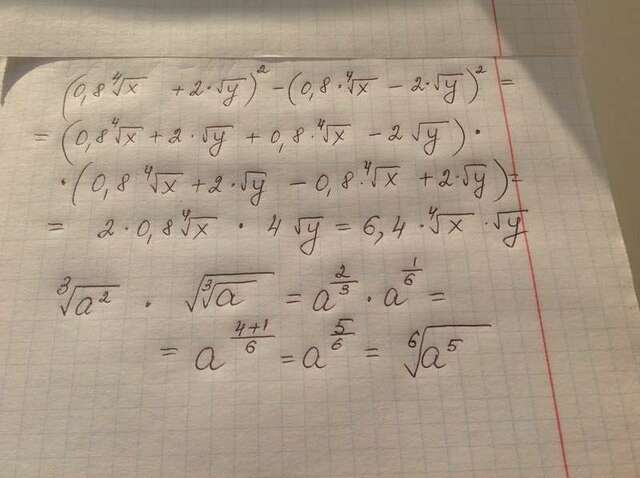 (0,8⁴√x + 2·√y)² − (0,8·⁴√x − 2·√y)² =
= (0,8⁴√x + 2·√y + 0,8·⁴√x − 2√y)·
·(0,8·⁴√x + 2·√y − 0,8·⁴√x + 2·√y) =
= 2·0,8⁴√x · 4√y = 6,4·⁴√x·√y
³√a² · √(³√a) = a^(2/3) · a^(1/6) =
= a^((4+1)/6) = a^(5/6) = ⁶√a⁵